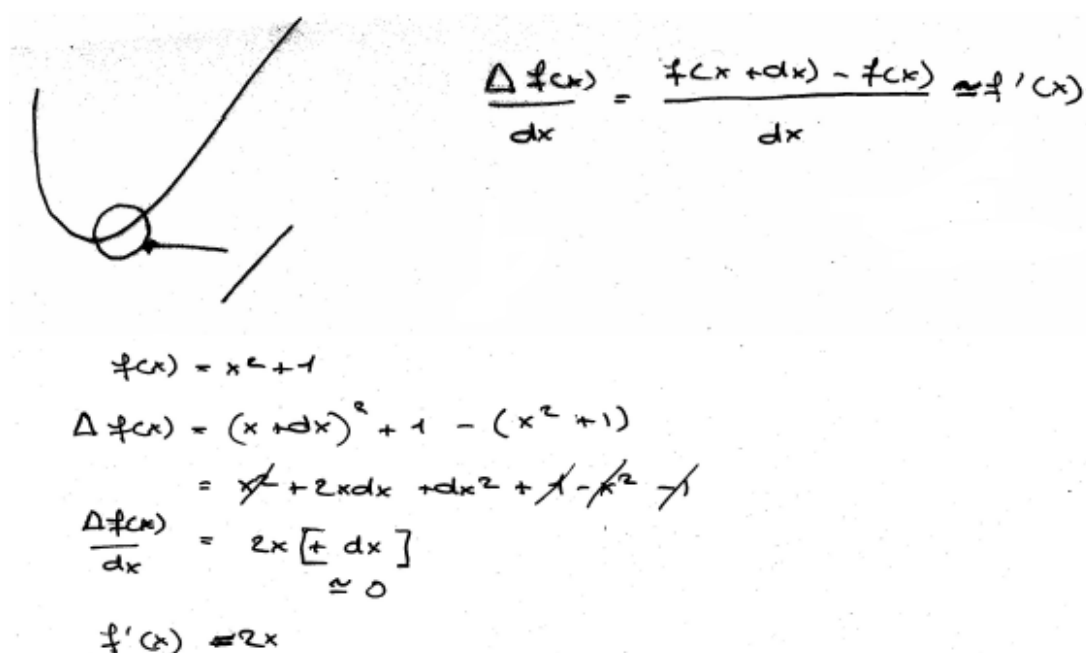 Δ f(x) / dx = f(x + dx) - f(x) / dx ≃ f'(x)
f(x) = x² + 1
Δ f(x) = (x + dx)² + 1 - (x² + 1)
= x² + 2xdx + dx² + 1 - x² - 1
Δ f(x) / dx = 2x [+ dx]
≃ 0
f'(x) = 2x